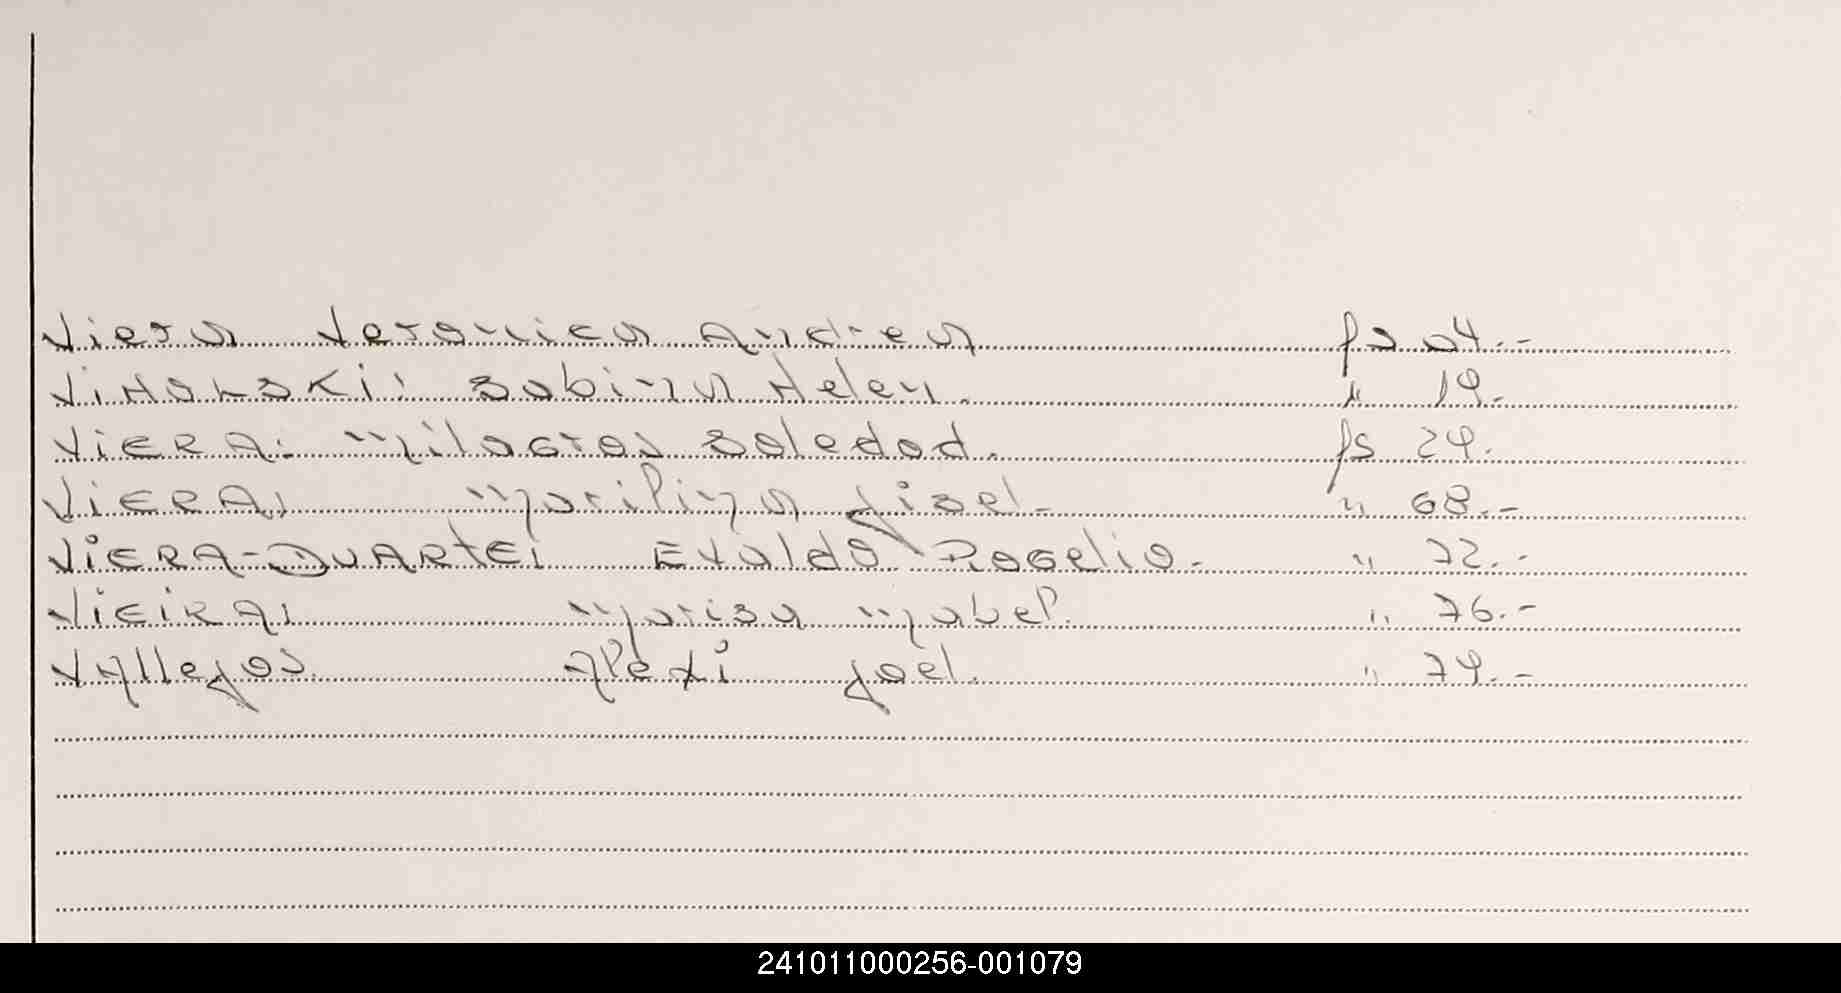 Viera Veronica Andrea fs 04.-
Viñarski: Sabina Helen. " 19.
VIERA: Milagros Soledad. fs 24.
VIERA; Marilina Gisel- " 68.-
VIERA-DUARTE; Evaldo Rogelio. " 72.-
VIEIRA; Marisa Mabel. " 76.-
Vallejos. Alexi Joel. " 74.-
241011000256-001079